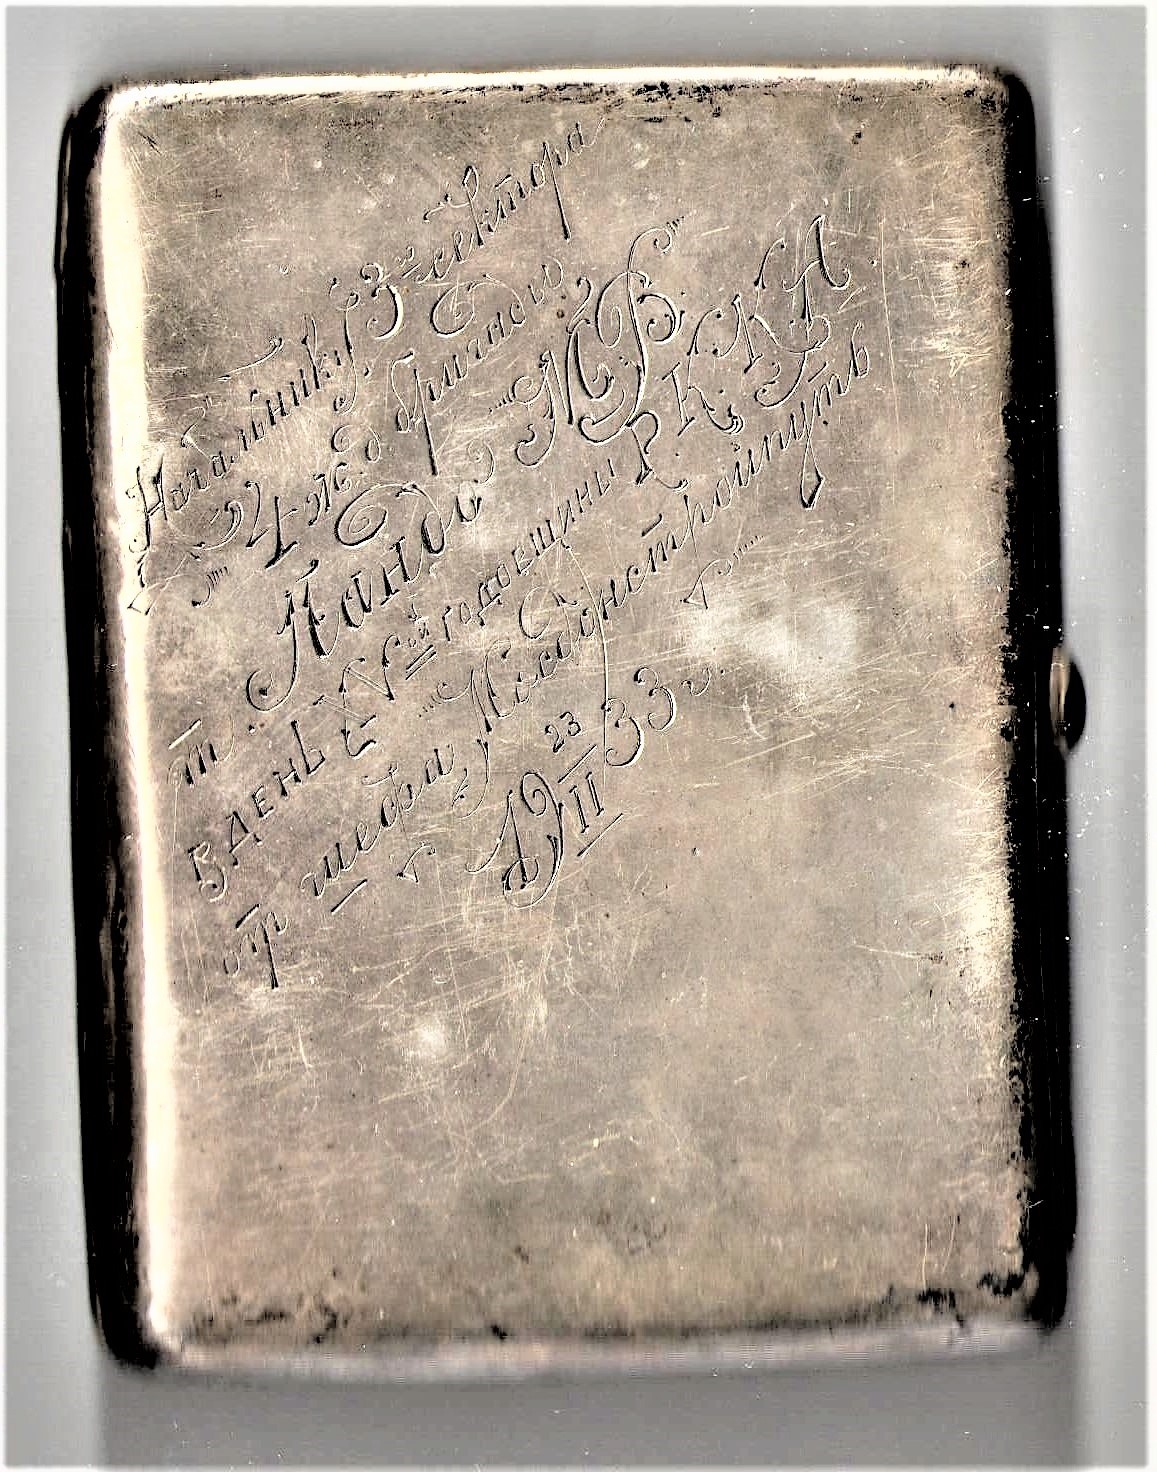 Начальнику 3го сектора
4 ж.д. бригады
т. Ландо М.Ф.
В ДЕНЬ XVой ГОДОВЩИНЫ Р.К.К.А.
от шефа Мосдонстройпуть.
19 23/II 33 г.